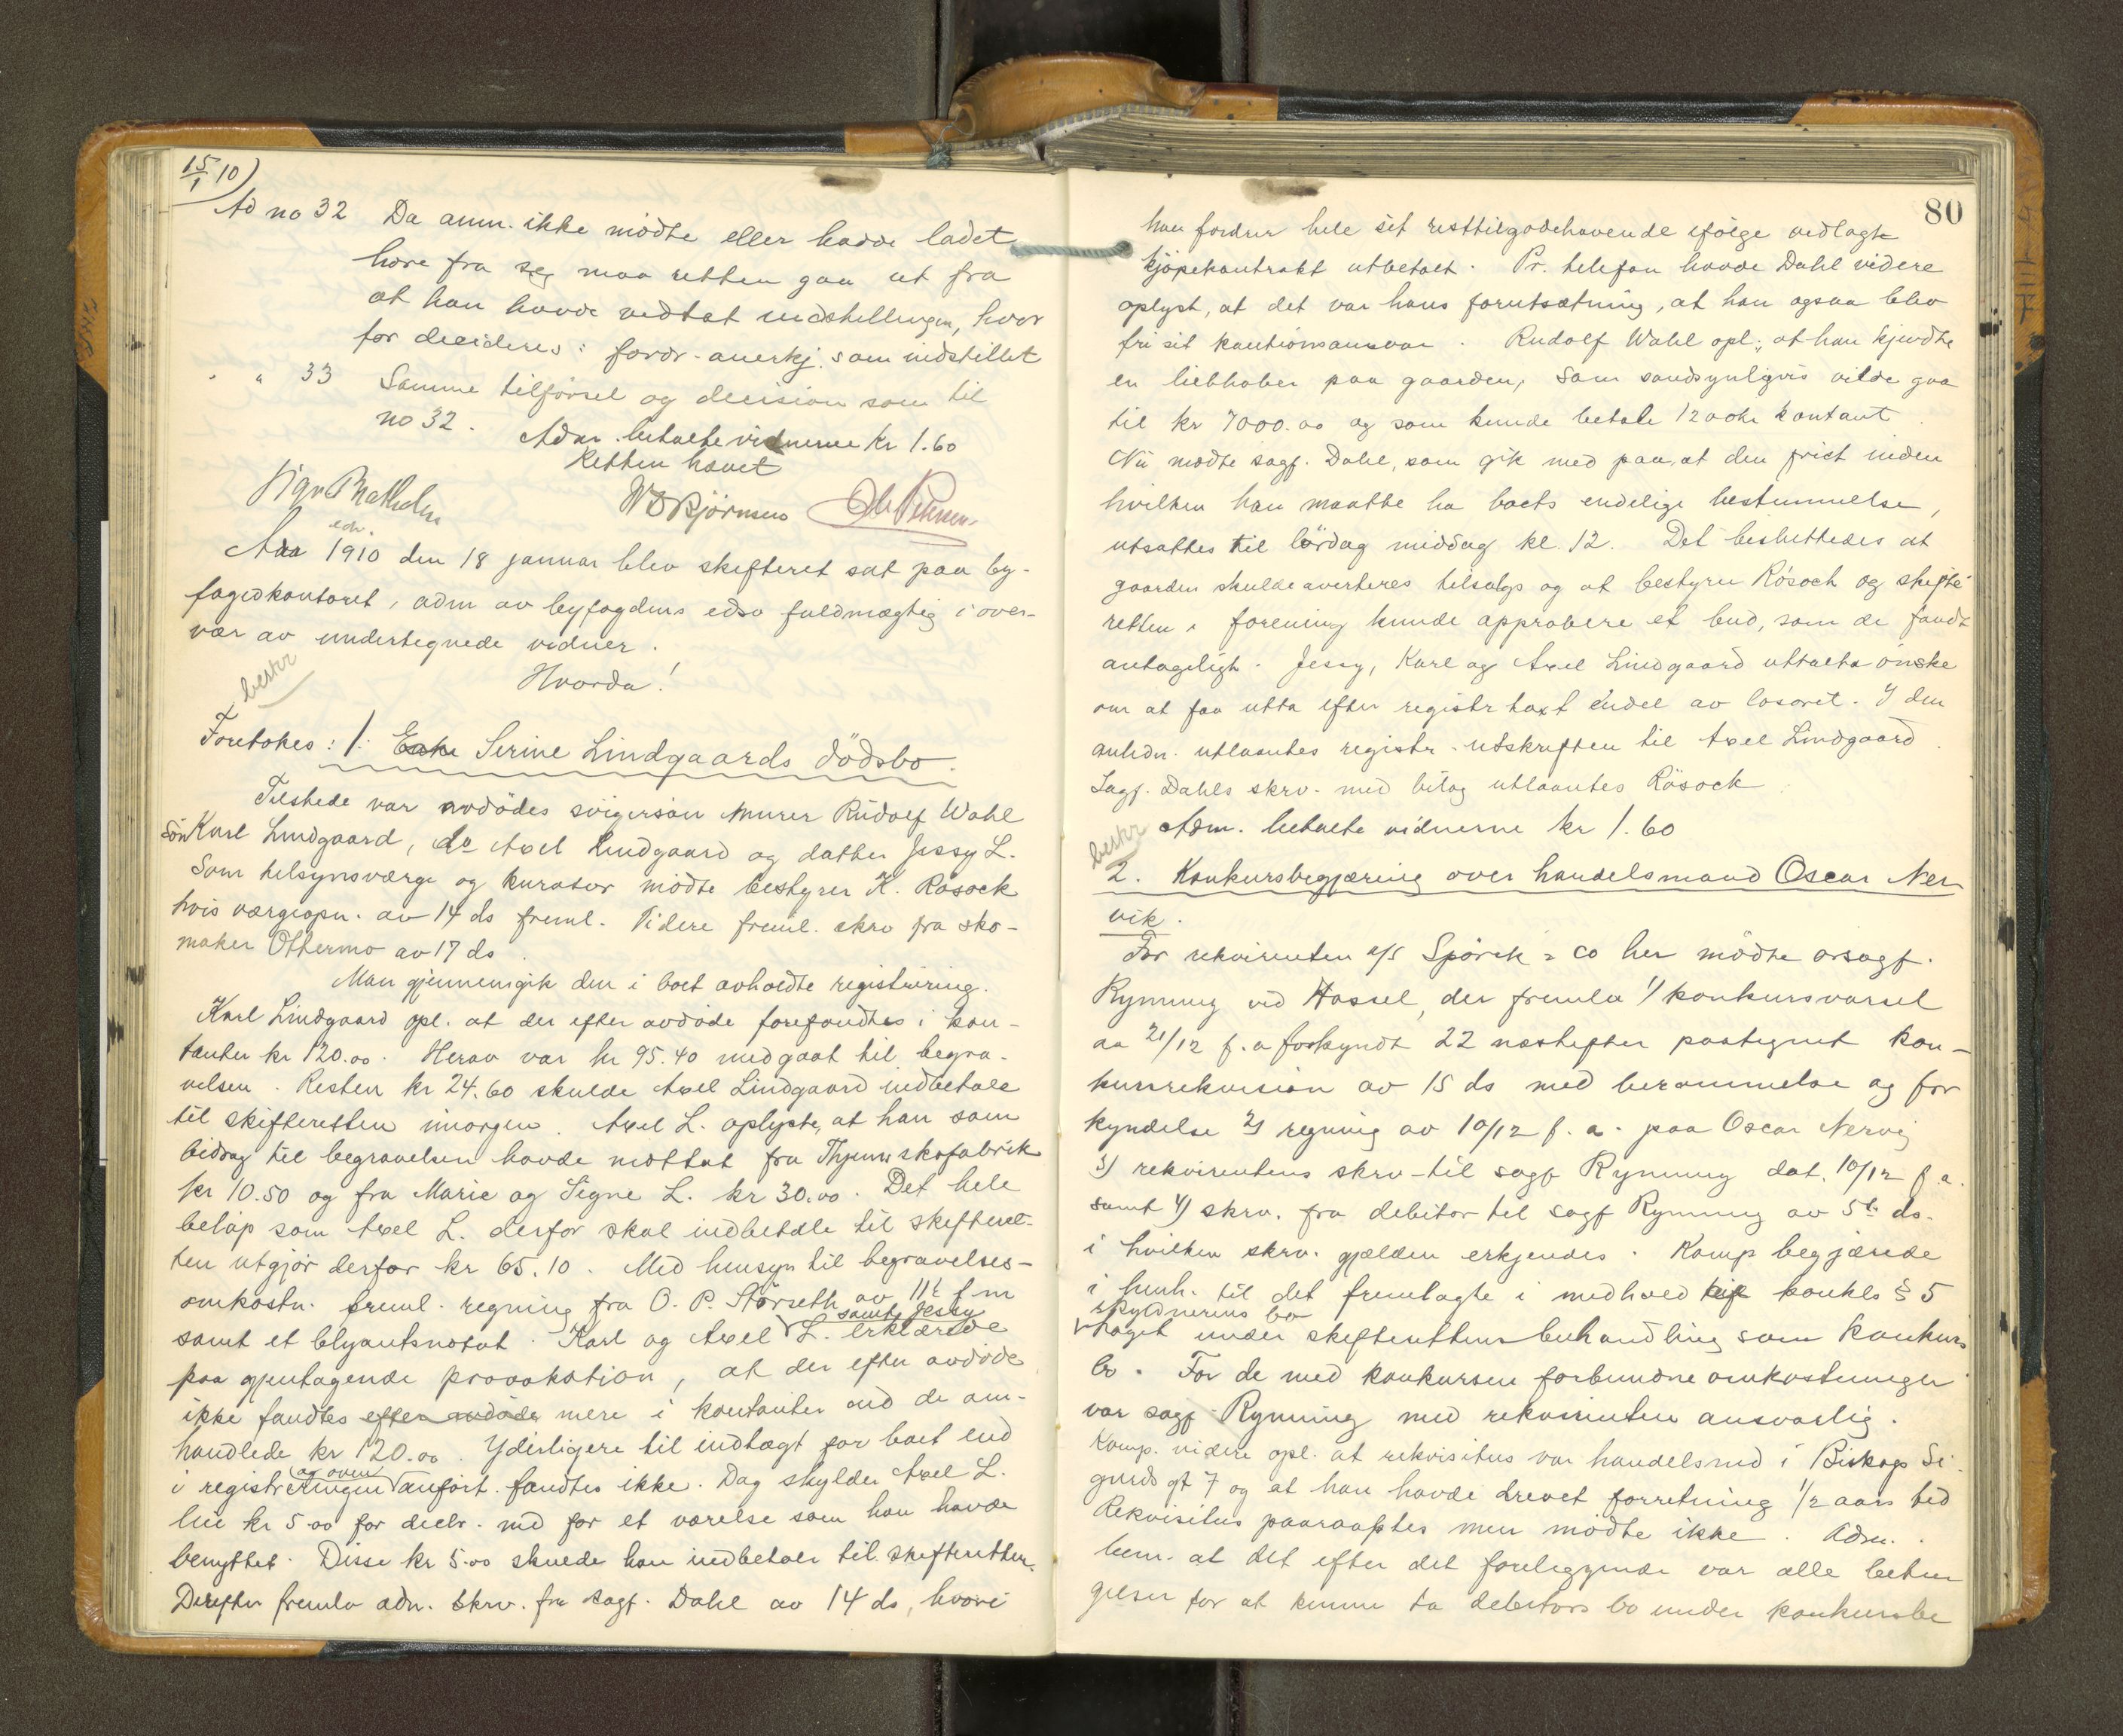 15/1 10)
Ad no 32 Da anm. ikke mødte eller hadde ladet
høre fra seg maa retten gaa ut fra
at han havde vedtat indstillingen, hvor
for decideres: fordr. anerkj. som indstillet
" " 33 Samme tilførsel og decision som til
no 32.
Adm. betalte vidnerne kr 1.60
Retten hævet
W D Bjørnsen
Aar 1910 den 18 januar blev skifteret sat paa by-
fogedkontoret, adm av byfogdens edsv fuldmægtig i over-
vær av undertegnede vidner.
Hvorda!
beskr
Foretokes: 1. Enke Serine Lindgaards dödsbo.
Tilstede var avdödes svigersön murer Rudolf Wahl
sön Karl Lindgaard, do Axel Lindgaard og datter Jessy L.
Som tilsynsværge og kurator mödte bestyrer K. Rösock
hvis værgeopn. av 14 ds freml. Videre freml. skrv fra sko-
maker Othermo av 17 ds.
Man gjennemgik den i boet avholdte registrering.
Karl Lindgaard opl. at der efter avdöde forefandtes i kon-
tanter kr 120.00. Herav var kr 95.40 medgaat til begra-
velsen. Resten kr 24.60 skulde Axel Lindgaard indbetale
til skifteretten imorgen. Axel L. oplyste, at han som
bidrag til begravelsen havde mottat fra Thjems skofabrik
kr 10.50 og fra Marie og Signe L. kr 30.00. Det hele
belöp som Axel L. derfor skal indbetale til skifteret-
ten utgjör derfor kr 65.10. Med hensyn til begravelses-
omkostn. freml. regning fra O. P. Störseth av 11/1 f m
samt et blyantsnotat. Karl og Axel L. samt Jessy erklærede
paa gjentagende provokation, at der efter avdöde
ikke fandtes efter avdöde mere i kontanter end de om-
handlede kr 120.00. Yderligere til indtægt for boet end
i registreringen og oven anfört fandtes ikke. Dog skylder Axel L.
leie kr 5.00 for decbr. md for et værelse som han havde
benyttet. Disse kr 5.00 skulde han indbetale til skifteretten.
Derefter fremla adm. skrv. fra sagf. Dahl av 14 ds, hvori
80
han fordrer hele sit resttilgodehavende ifölge vedlagte
kjöpekontrakt utbetalt. Pr. telefon havde Dahl videre
oplyst, at det var hans forutsætning, at han ogsaa blev
fri sit kautionsansvar. Rudolf Wahl opl., at han kjendte
en liebhaber paa gaarden, som sandsynligvis vilde gaa
til kr 7000.00 og som kunde betale 1200 kr kontant.
Nu mödte sagf. Dahl, som gik med paa, at den frist inden
hvilken han maatte ha boets endelige bestemmelse,
utsattes til lördag middag kl. 12. Det besluttedes at
gaarden skulde averteres tilsalgs og at bestyrer Rösock og skifte
retten i forening kunde approbere et bud, som de fandt
antageligt. Jessy, Karl og Axel Lindgaard uttalte önske
om at faa utta efter registr taxt endel av lösöret. I den
anledn. utlaantes registr. utskriften til Axel Lindgaard.
Sagf. Dahls skrv. med bilag utlaantes Rösock.
Adm. betalte vidnerne kr 1.60
beskr
2. Konkursbegjæring over handelsmand Oscar Ner
vik.
For rekvirenten a/s Spörck & co her mödte orsagf.
Rynning ved Hassel, der fremla 1) konkursvarsel
av 21/12 f. a forkyndt 22 næstefter paategnet kon-
kursrekvision av 15 ds med berammelse og for
kyndelse 2) regning av 10/12 f. a. paa Oscar Nervig
3) rekvirentens skrv. til sagf Rynning dat. 10/12 f. a.
samt 4) skrv. fra debitor til sagf Rynning av 5te ds.
i hvilken skrv. gjælden erkjendes. Komp begjærede
i henh. til det fremlagte i medhold kpf konkls § 5
skyldnerens bo
taget under skifterettens behandling som konkurs
bo. For de med konkursen forbundne omkostninger
var sagf Rynning med rekvirenten ansvarlig.
Komp. videre opl. at rekvisitus var handelsmd i Biskop Si
gurds gt 7 og at han havde drevet forretning 1/2 aars tid
Rekvisitus paaraaptes men mödte ikke. Adm.
bem. at det efter det foreliggende var alle betin
gelser for at kunne ta debitors bo under konkursbe